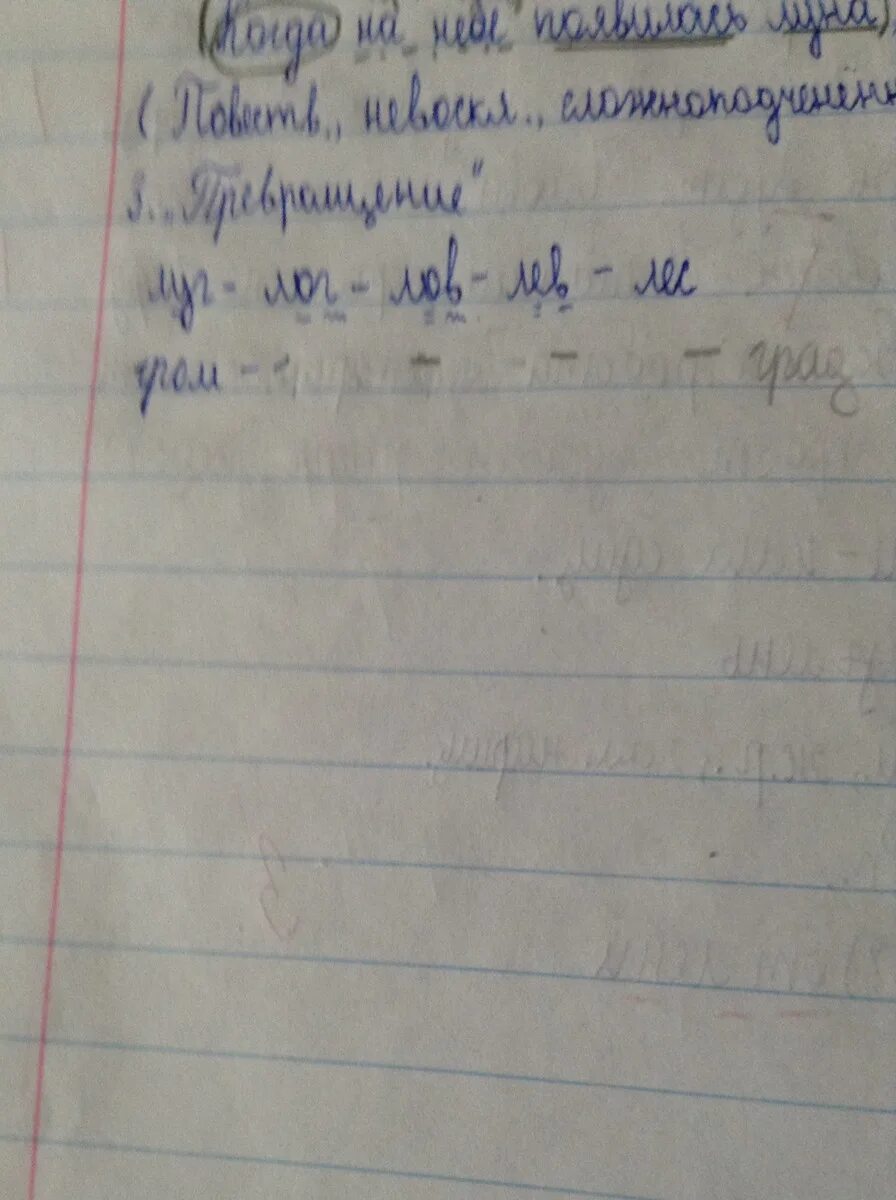 (Когда на небе появилась луна),
(Повеств., невоскл., сложноподченённ
3. „Превращение"
луг - лог - лов - лев - лес
гром - - - - град